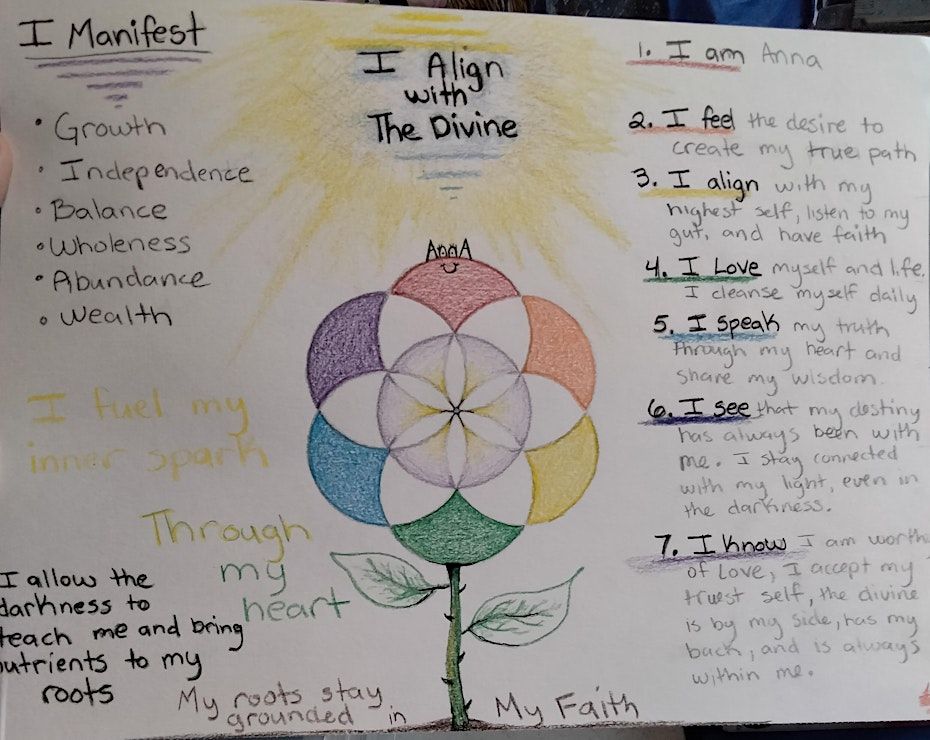 I Manifest
• Growth
• Independence
• Balance
• Wholeness
• Abundance
• Wealth
I Align
with
The Divine
AnnA
1. I am Anna
2. I feel the desire to
create my true path
3. I align with my
highest self, listen to my
gut, and have faith
4. I Love myself and life.
I cleanse myself daily
5. I speak my truth
through my heart and
share my wisdom.
6. I see that my destiny
has always been with
me. I stay connected
with my light, even in
the darkness.
7. I know I am worth
of Love, I accept my
truest self, the divine
is by my side, has my
back, and is always
within me.
I fuel my
inner spark
Through
my
heart
I allow the
darkness to
teach me and bring
utrients to my
roots
My roots stay
grounded in My Faith